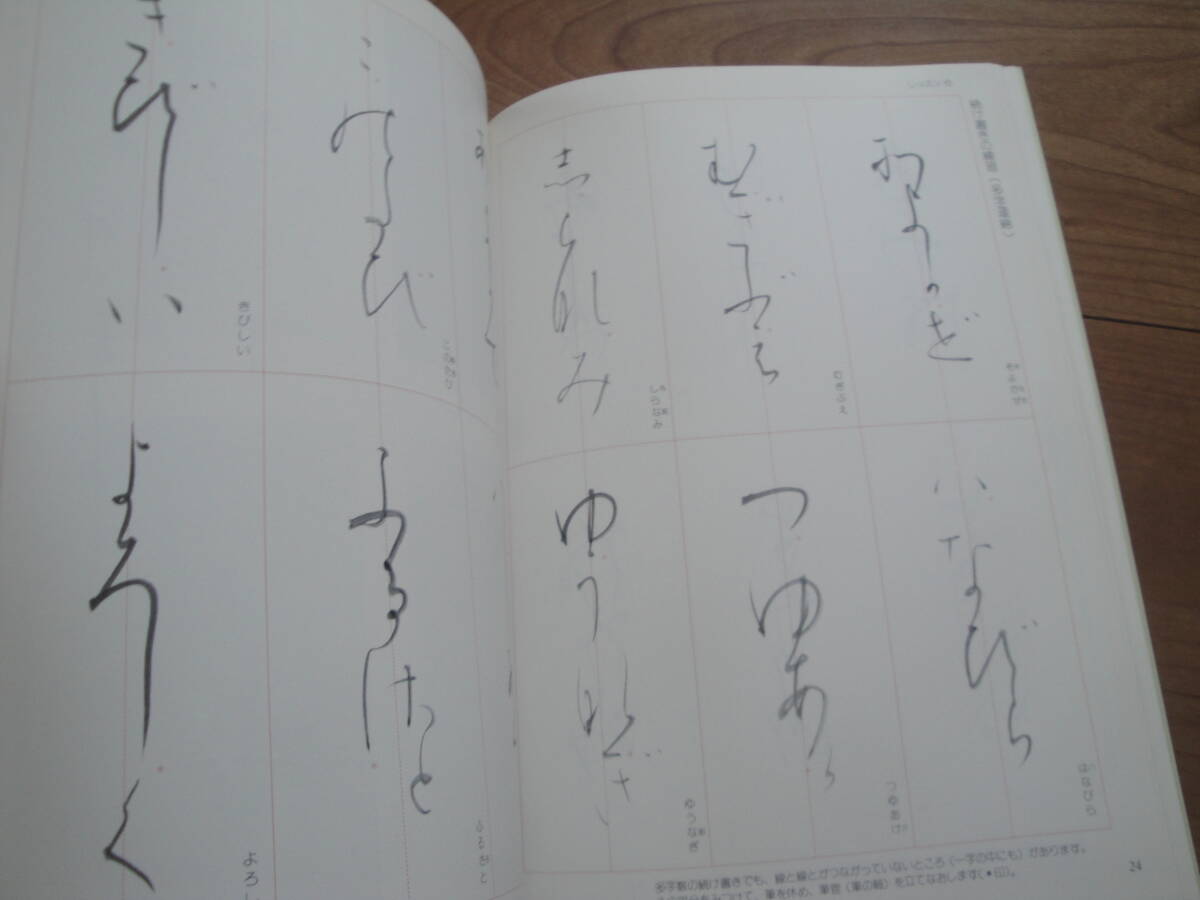 続け書きの練習
むぎぶえ
むぎぶえ
しらなみ
しらなみ
はなびら
はなびら
つゆあけ
つゆあけ
ゆうなぎ
ゆうなぎ
多字数の続け書きでも、線と線とがつながっていないところ（一字の中にも）があります。
筆を休め、筆管（筆の軸）を立てなおします（●印）。
24
きびしい
きびしい
ふるさと
ふるさと
よろしく
よろし